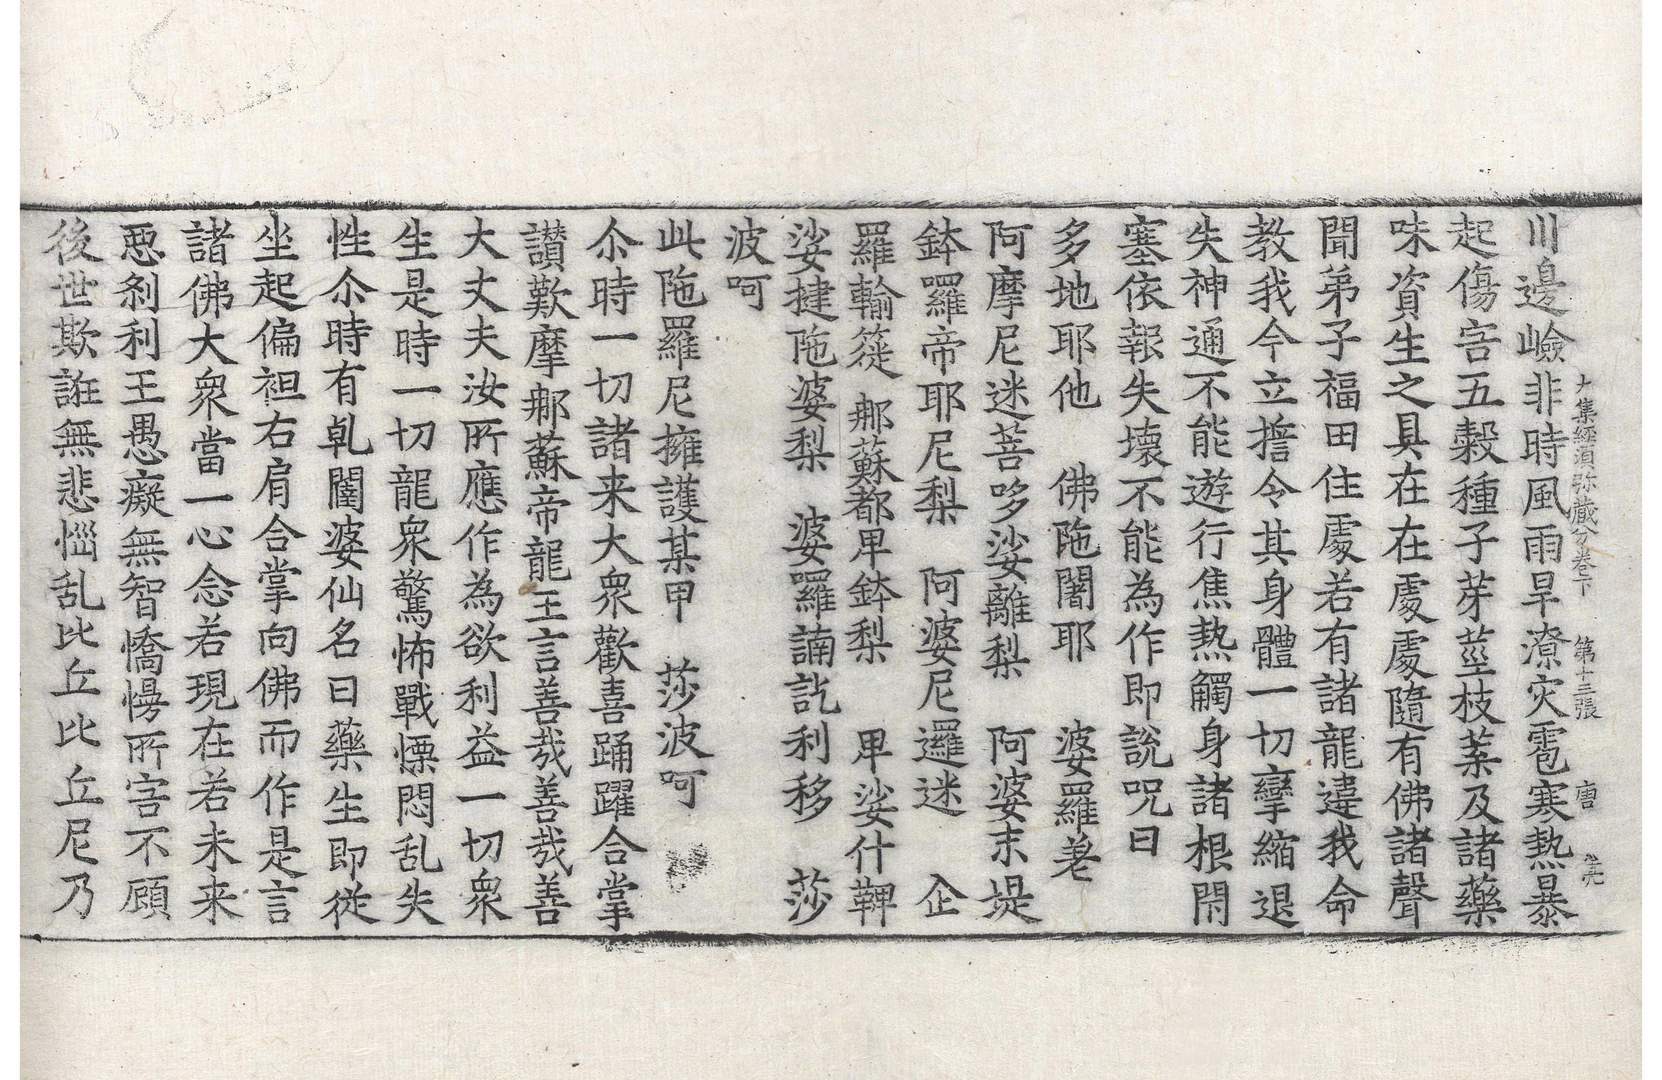 大集經湏弥藏分卷下　第十三張　唐
川邊嶮非時風雨旱潦灾雹寒熱暴
起傷害五穀種子芽莖枝葉及諸藥
味資生之具在在處處隨有佛諸聲
聞弟子福田住處若有諸龍違我命
教我今立擔令其身體一切攣縮退
失神通不能遊行焦熱觸身諸根閇
塞依報失壞不能為作即說呪曰
多地耶他　佛陁闍耶　婆羅差
阿摩尼迷菩哆娑離梨　阿婆末堤
鉢囉帝耶尼梨　阿婆尼邏迷　企
羅輸簁那蘇都卑鉢梨　卑娑什鞞
娑揵陁婆梨　婆羅誧訖利移　莎
波呵
此陁羅尼擁護某甲　莎波呵
尒時一切諸来大衆歡喜踊躍合掌
讃歎摩那蘇帝龍王言善㢤善㢤善
大丈夫汝所應作為欲利益一切衆
生是時一切龍衆驚怖戰慄悶乱失
性尒時有乹闥婆仙名曰藥生即從
坐起偏袒右肩合掌向佛而作是言
諸佛大衆當一心念若現在若未来
惡刹利王愚癡無智憍慢所害不顧
後世欺誑無悲惱乱比丘比丘尼乃